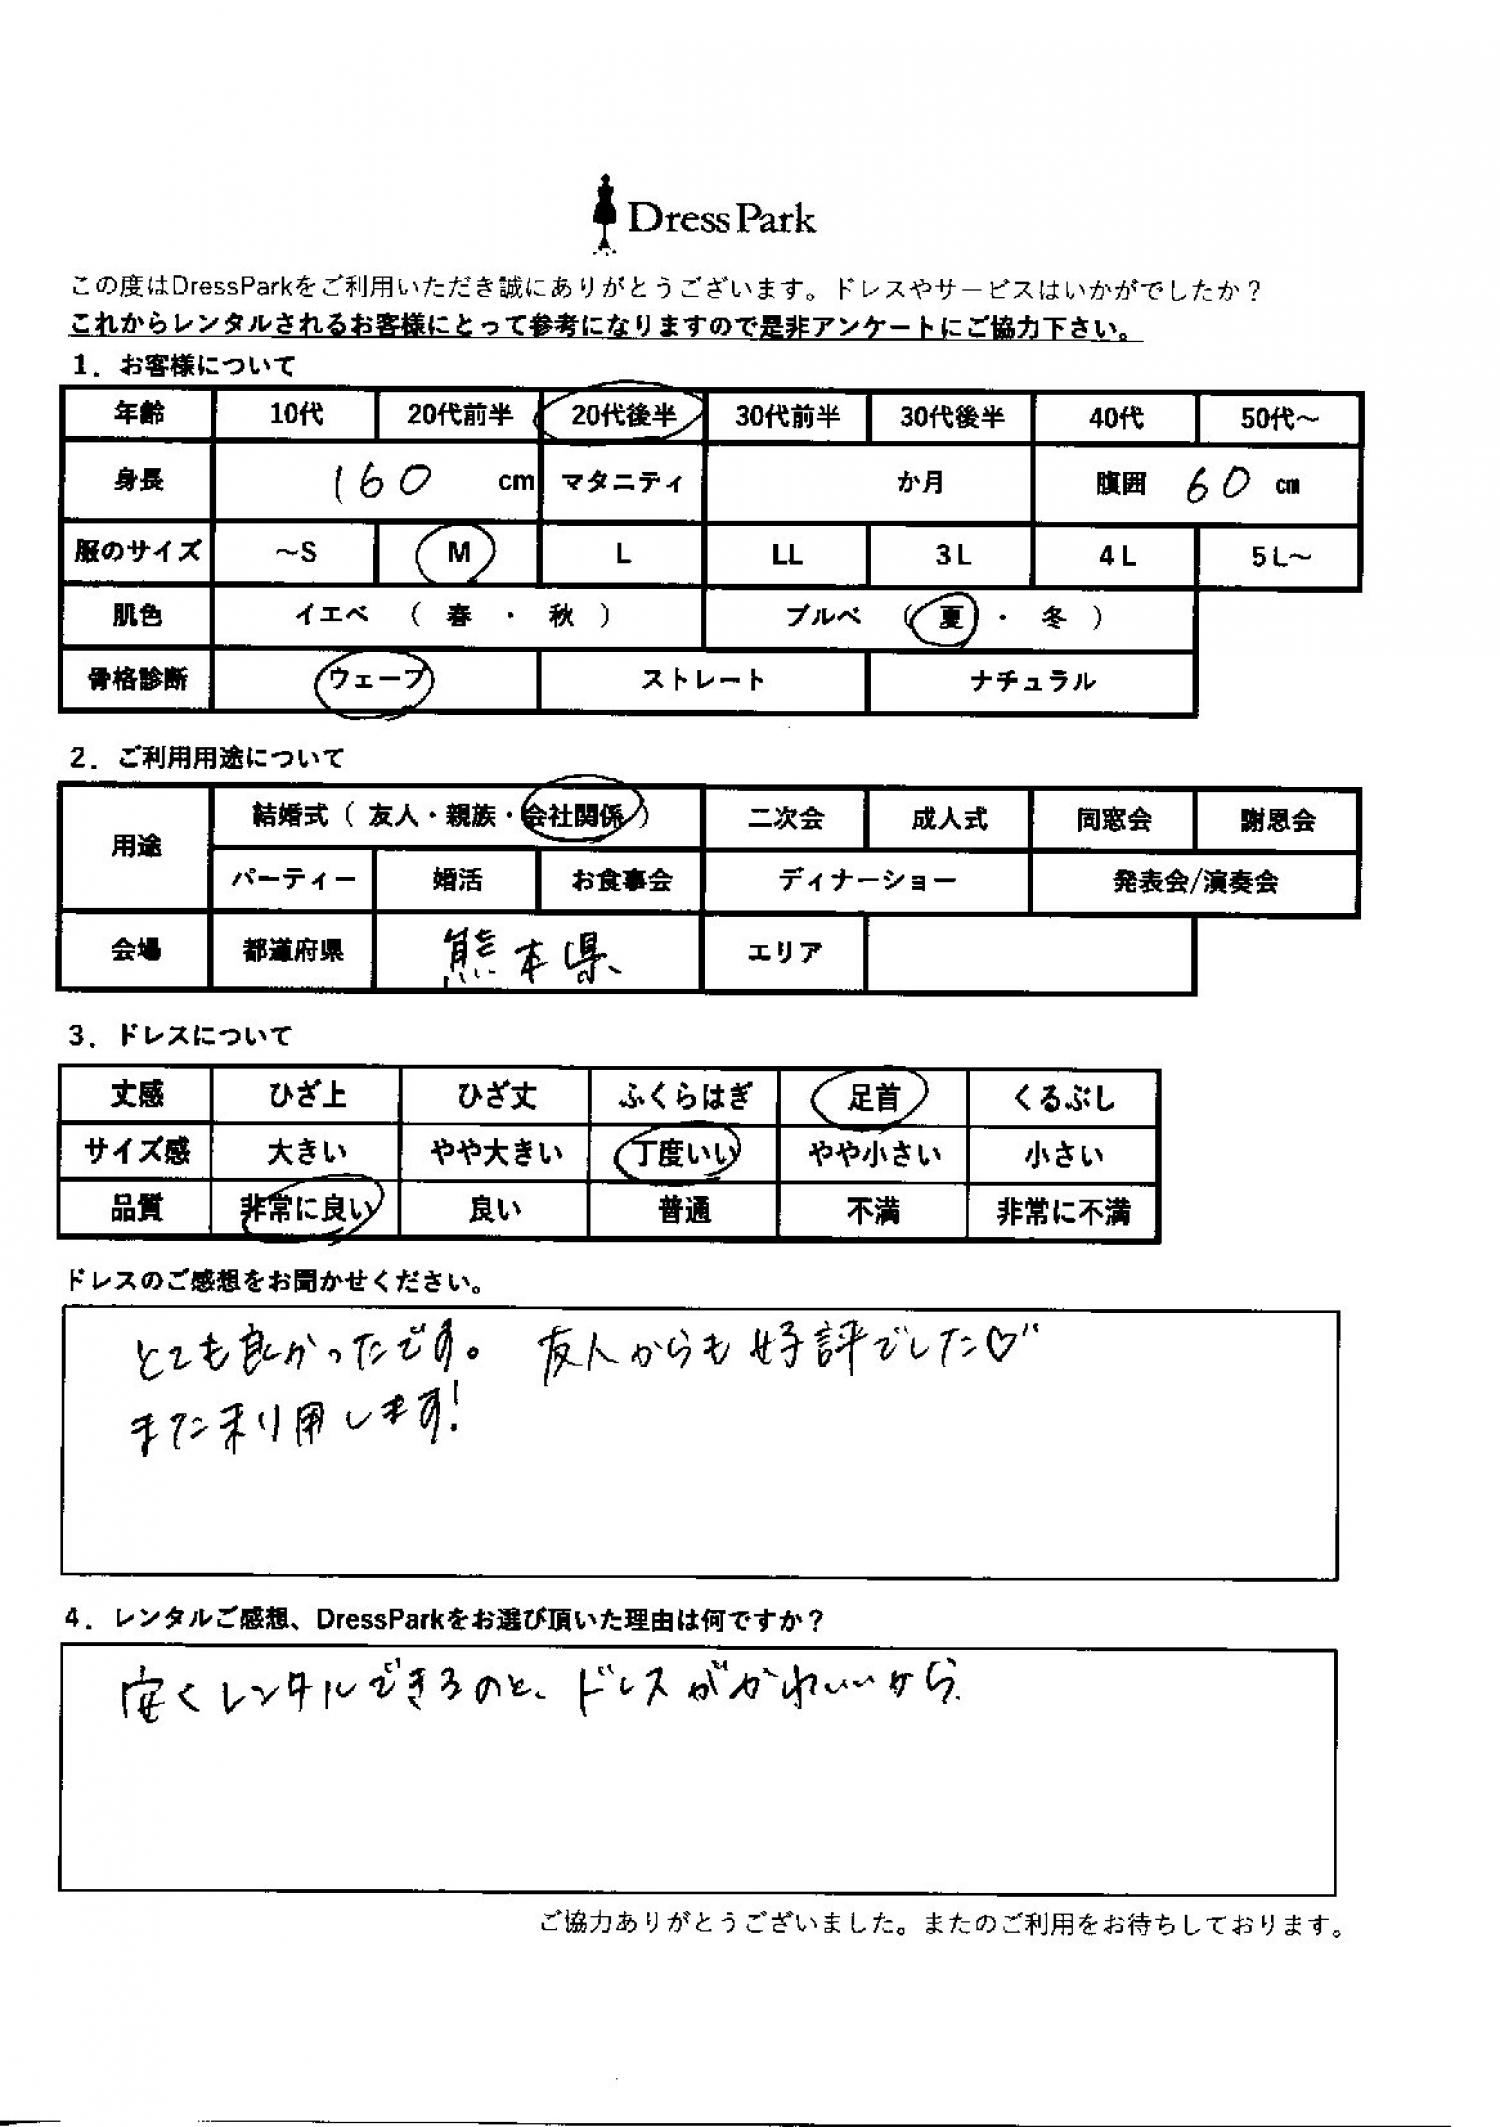 Dress Park
この度はDressParkをご利用いただき誠にありがとうございます。ドレスやサービスはいかがでしたか?
これからレンタルされるお客様にとって参考になりますので是非アンケートにご協力下さい。
1．お客様について
年齢 10代 20代前半 20代後半 30代前半 30代後半 40代 50代～
身長 160 cm マタニティ か月 腹囲 60 cm
服のサイズ ～S M L LL 3L 4L 5L～
肌色 イエベ （ 春 ・ 秋 ） ブルベ （ 夏 ・ 冬 ）
骨格診断 ウェーブ ストレート ナチュラル
2．ご利用用途について
用途 結婚式（ 友人・親族・会社関係 ） 二次会 成人式 同窓会 謝恩会
パーティー 婚活 お食事会 ディナーショー 発表会/演奏会
会場 都道府県 熊本県 エリア
3．ドレスについて
丈感 ひざ上 ひざ丈 ふくらはぎ 足首 くるぶし
サイズ感 大きい やや大きい 丁度いい やや小さい 小さい
品質 非常に良い 良い 普通 不満 非常に不満
ドレスのご感想をお聞かせください。
とても良かったです。 友人からも好評でした♡
また利用します!
4．レンタルご感想、DressParkをお選び頂いた理由は何ですか？
安くレンタルできるのと、ドレスがかわいいから
ご協力ありがとうございました。またのご利用をお待ちしております。